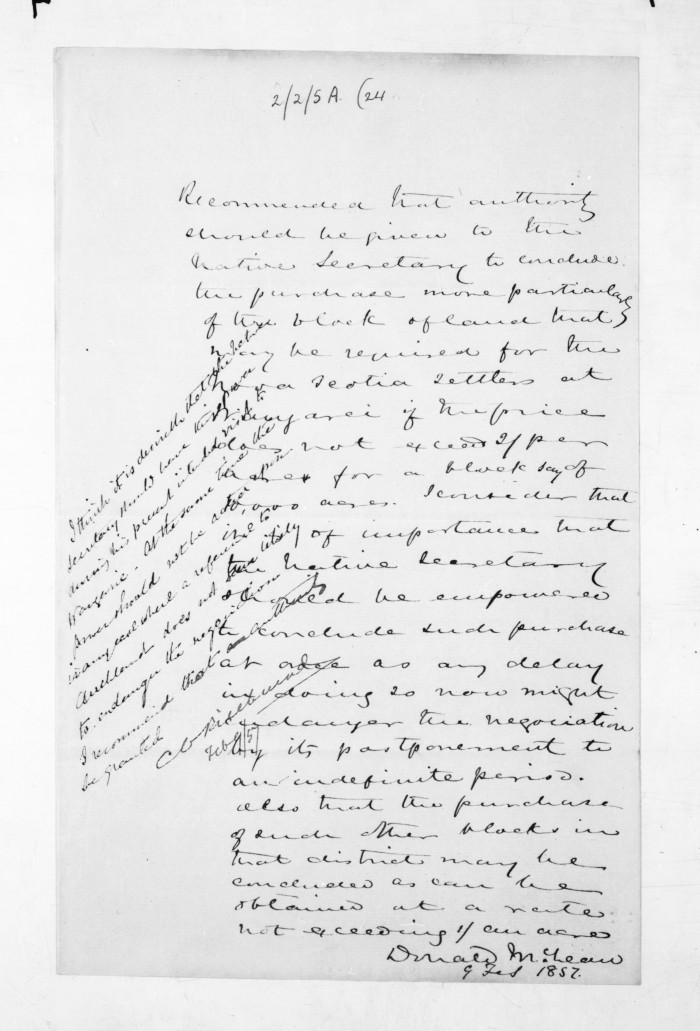 2/2/5A. (24
Recommended that authority
should be given to the
Native Secretary to conclude
the purchase more particularly
of the block of land that
may be required for the
Nova Scotia Settlers at
if the price
does not exceed 2/ per
acre for a block say of
acres. I consider that
it is of importance that
the Native Secretary
should be empowered
to conclude such purchase
at once as any delay
in doing so now might
endanger the negociation
by its postponement to
an indefinite period.
also that the purchase
of such other blocks in
that district may be
concluded as can be
obtained at a rate
not exceeding 1/ an acre
Donald McLean
9 Feb 1857.
I think it is desirable that the Native
Secretary should have this power
during his present intended visit to
Wangarei. At the same time the
power should not be acted upon
in any case where a reference to
Auckland does not seem likely
to endanger the negociation
I recommend that
be granted
Feb 9/57